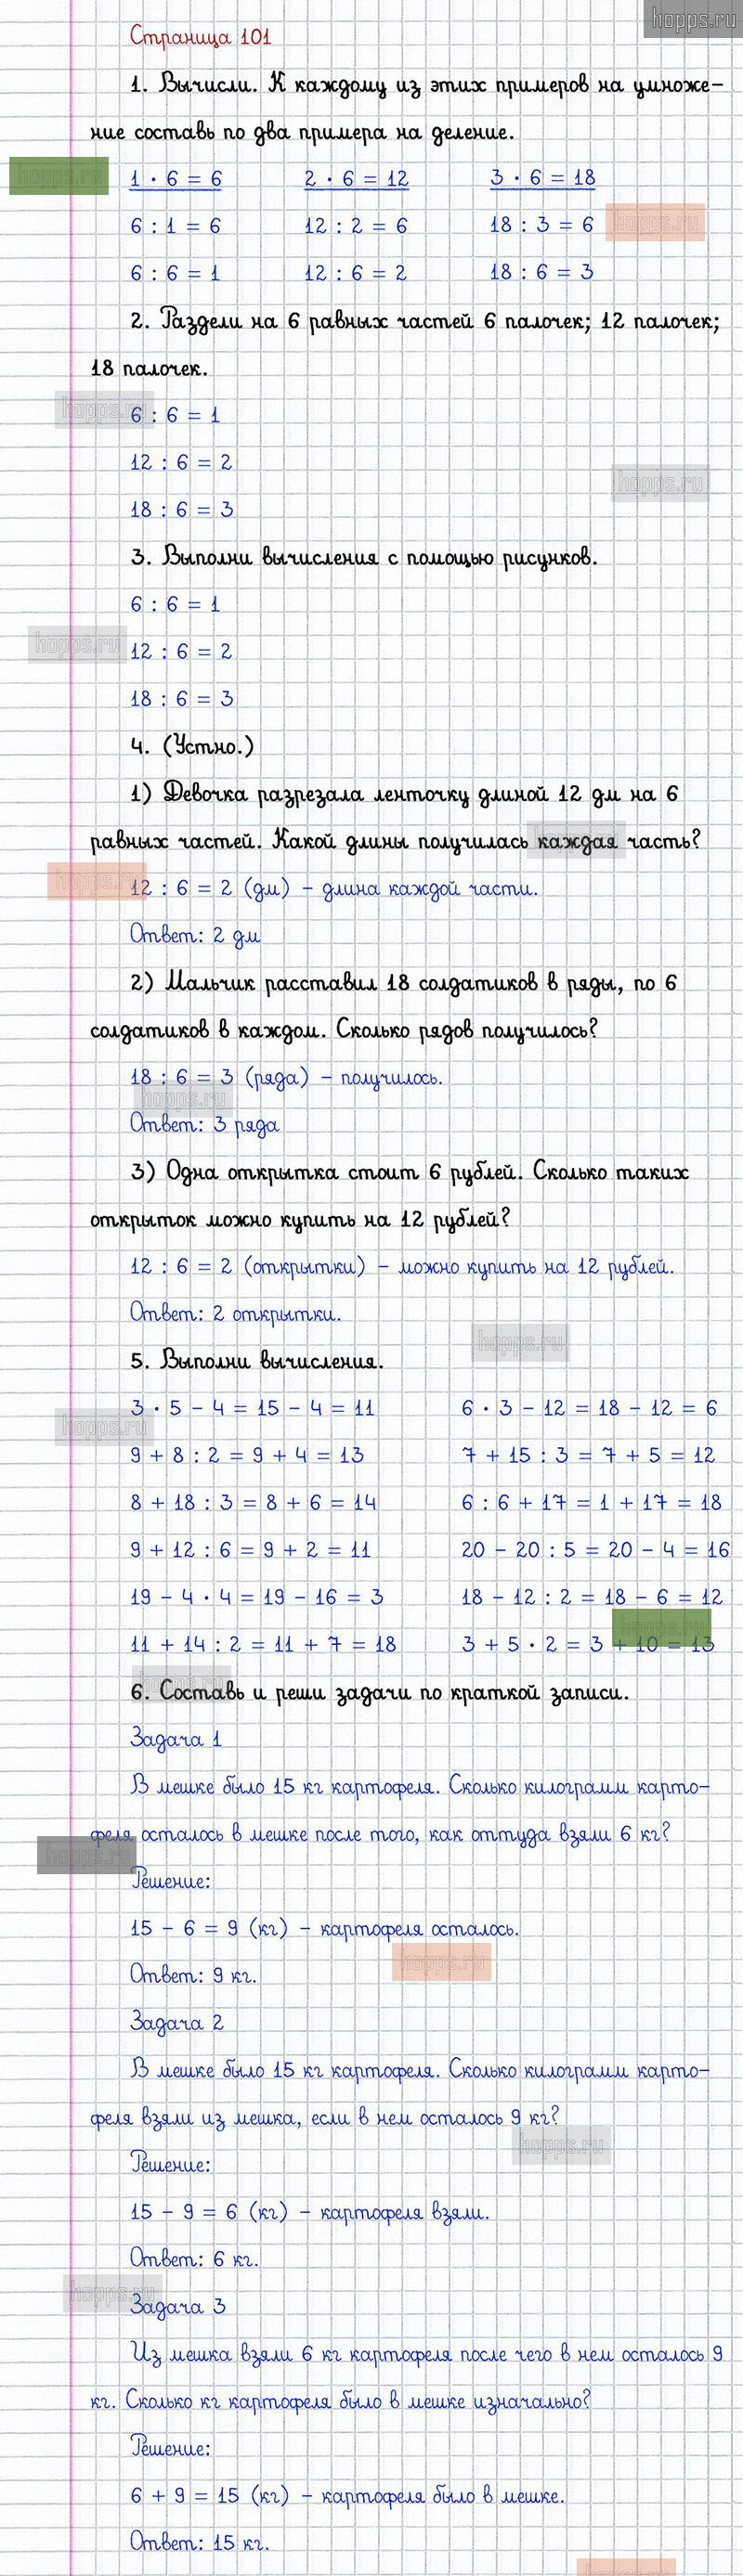 hopps.ru
Страница 101
1. Вычисли. К каждому из этих примеров на умноже-
ние составь по два примера на деление.
hopps.ru
1 · 6 = 6 2 · 6 = 12 3 · 6 = 18
6 : 1 = 6 12 : 2 = 6 18 : 3 = 6 hopps.ru
6 : 6 = 1 12 : 6 = 2 18 : 6 = 3
2. Раздели на 6 равных частей 6 палочек; 12 палочек;
18 палочек.
hopps.ru
6 : 6 = 1
12 : 6 = 2
hopps.ru
18 : 6 = 3
3. Выполни вычисления с помощью рисунков.
6 : 6 = 1
hopps.ru
12 : 6 = 2
18 : 6 = 3
4. (Устно.)
1) Девочка разрезала ленточку длиной 12 дм на 6
равных частей. Какой длины получилась каждая часть?
hopps.ru
hopps.ru
12 : 6 = 2 (дм) – длина каждой части.
Ответ: 2 дм
2) Мальчик расставил 18 солдатиков в ряды, по 6
солдатиков в каждом. Сколько рядов получилось?
18 : 6 = 3 (ряда) – получилось.
hopps.ru
Ответ: 3 ряда
3) Одна открытка стоит 6 рублей. Сколько таких
открыток можно купить на 12 рублей?
12 : 6 = 2 (открытки) – можно купить на 12 рублей.
Ответ: 2 открытки.
hopps.ru
5. Выполни вычисления.
3 · 5 – 4 = 15 – 4 = 11 6 · 3 – 12 = 18 – 12 = 6
hopps.ru
9 + 8 : 2 = 9 + 4 = 13 7 + 15 : 3 = 7 + 5 = 12
8 + 18 : 3 = 8 + 6 = 14 6 : 6 + 17 = 1 + 17 = 18
9 + 12 : 6 = 9 + 2 = 11 20 – 20 : 5 = 20 – 4 = 16
19 – 4 · 4 = 19 – 16 = 3 18 – 12 : 2 = 18 – 6 = 12
hopps.ru
11 + 14 : 2 = 11 + 7 = 18 3 + 5 · 2 = 3 + 10 = 13
hopps.ru
6. Составь и реши задачи по краткой записи.
Задача 1
В мешке было 15 кг картофеля. Сколько килограмм карто-
феля осталось в мешке после того, как оттуда взяли 6 кг?
hopps.ru
Решение:
15 – 6 = 9 (кг) – картофеля осталось.
hopps.ru
Ответ: 9 кг.
Задача 2
В мешке было 15 кг картофеля. Сколько килограмм карто-
феля взяли из мешка, если в нем осталось 9 кг?
hopps.ru
Решение:
15 – 9 = 6 (кг) – картофеля взяли.
Ответ: 6 кг.
hopps.ru
Задача 3
Из мешка взяли 6 кг картофеля после чего в нем осталось 9
кг. Сколько кг картофеля было в мешке изначально?
Решение:
6 + 9 = 15 (кг) – картофеля было в мешке.
Ответ: 15 кг.